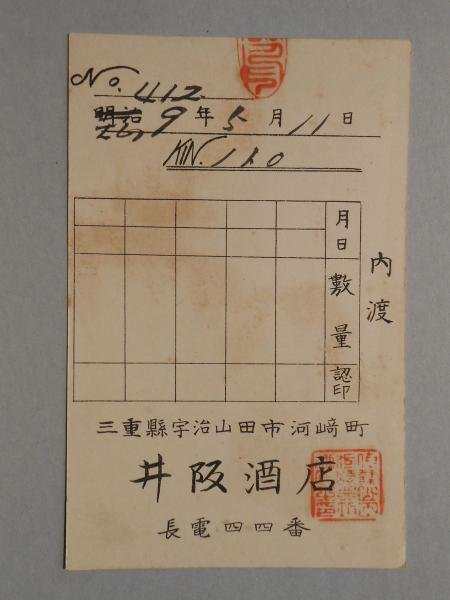 No. 412
明治
大正9年5月11日
KIN. 1.50
内渡
月日
数量
認印
三重縣宇治山田市河﨑町
井阪酒店
長電四四番